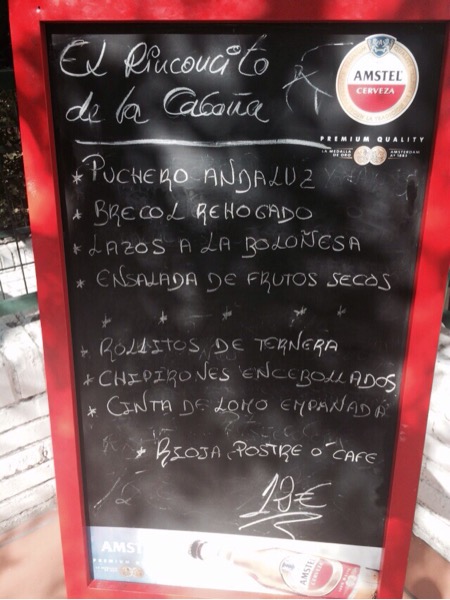 El Rinconcito
de la Cabaña
AMSTEL
CERVEZA
PREMIUM QUALITY
* PUCHERO ANDALUZ
* BRECOL REHOGADO
* LAZOS A LA BOLOÑESA
* ENSALADA DE FRUTOS SECOS
* * * * *
* ROLLITOS DE TERNERA
* CHIPIRONES ENCEBOLLADOS
* CINTA DE LOMO EMPANADA
* RIOJA, POSTRE O´ CAFE
10€
AMST
PREMIUM
AMSTEL